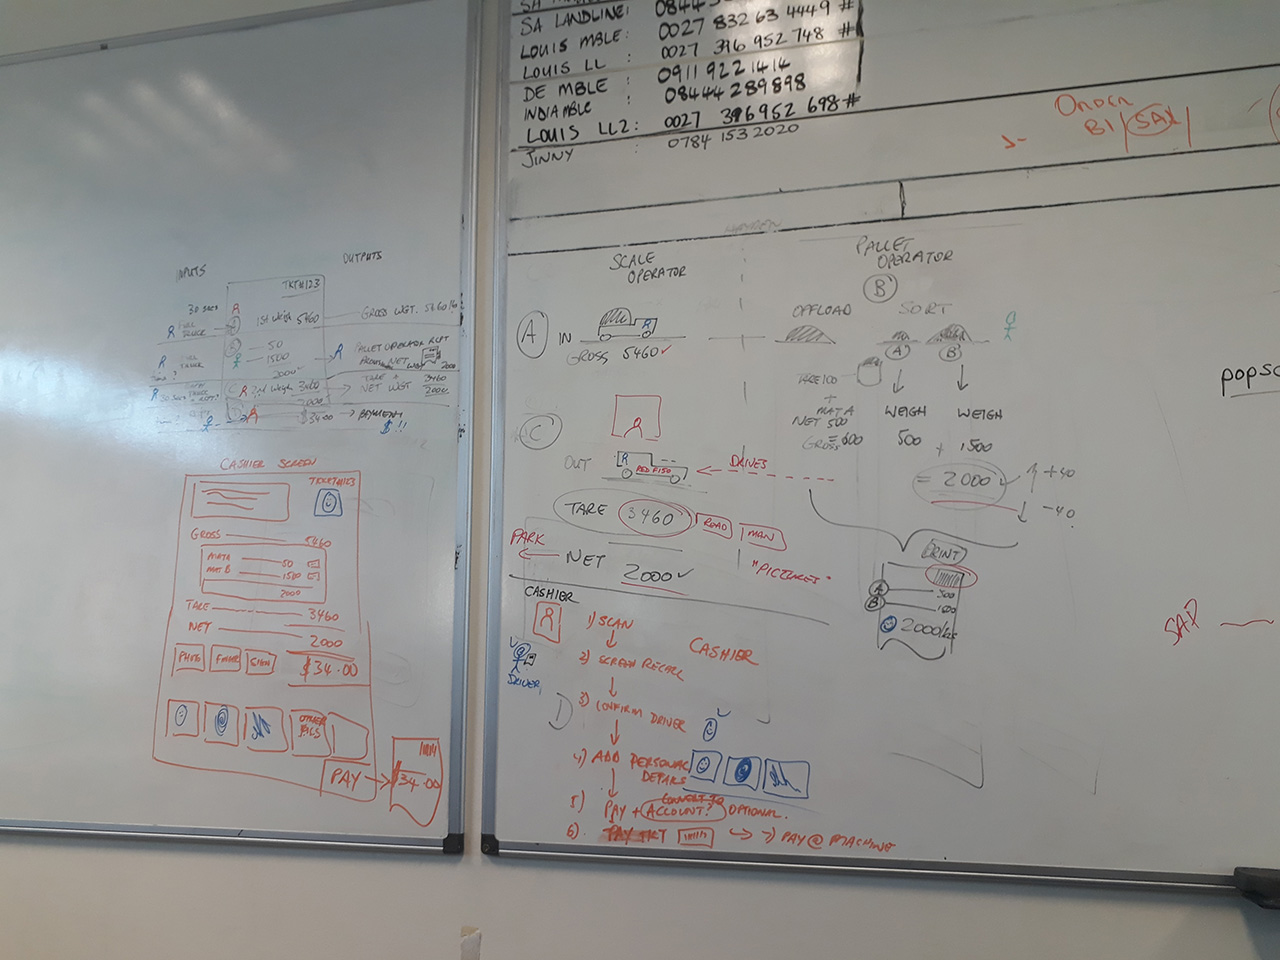 SA LANDLINE:
LOUIS MBLE: 0027 832 63 4449 #
LOUIS LL : 0027 396 952 748 #
DE MBLE : 0911 9221414
INDIA MBLE : 08444 289898
LOUIS LL2: 0027 396952 698#
JINNY : 0784 153 2020
B1 / SAX /
INPUTS
OUTPUTS
TKT#123
30 secs
1st Weigh 5460
GROSS WGT. 5460
50
1500
2000
PALLET OPERATOR RCPT
NET WGT 2000
2nd Weigh 3460
TARE 3460
NET WGT 2000
2000
$34.00
PAYMENT
$!!
CASHIER SCREEN
TICKET#123
GROSS 5460
MAT A 50
MAT B 1500
2000
TARE 3460
NET 2000
PHOTO
FINGER
SIGN
$34.00
OTHER PICS
PAY
$34.00
SCALE OPERATOR
PALLET OPERATOR
B
A
IN
GROSS 5460 ✓
OFFLOAD
SORT
A
B
TARE 100
+
MAT A
NET 500
GROSS = 600
WEIGH
WEIGH
500 + 1500
= 2000 ✓
+40
-40
C
OUT
RED F150
DRIVES
TARE 3460
ROAD
MAN
PARK
NET 2000 ✓
"PICTURES"
PRINT
A 500
B 1500
2000/
CASHIER
DRIVER
CASHIER
1) SCAN
2) SCREEN RECALL
3) CONFIRM DRIVER
D
4) ADD PERSONAL DETAILS
5) PAY + CONVERT TO ACCOUNT? OPTIONAL.
6). PAY TKT → 7) PAY @ MACHINE
SAP